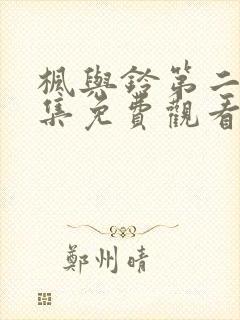 楓與鈴第二
集免費觀看
鄭州晴